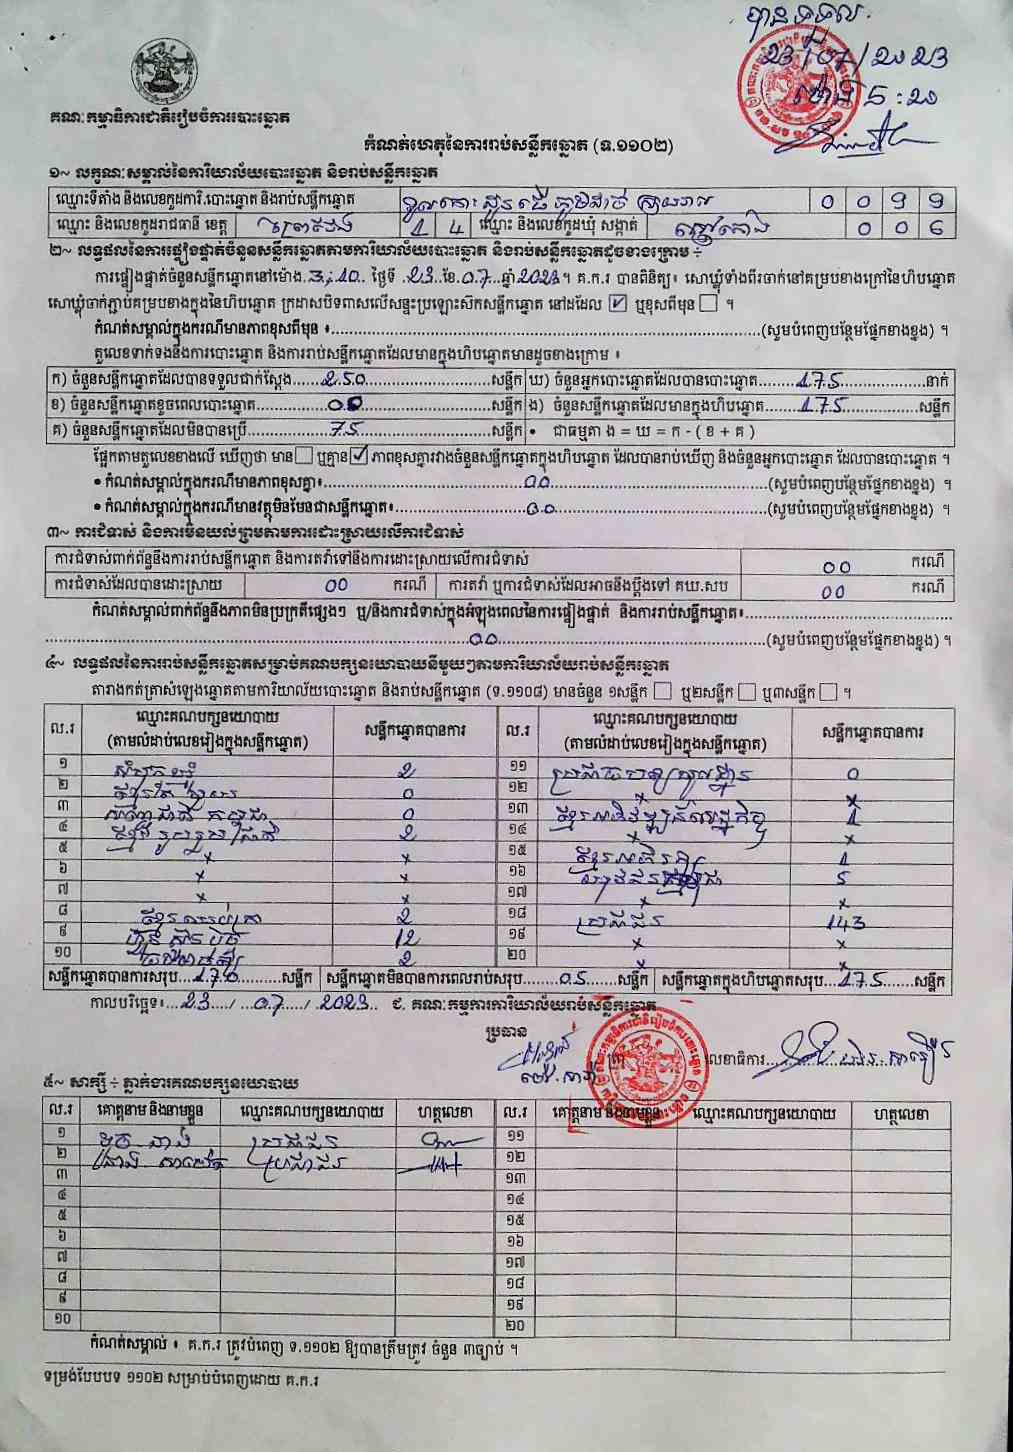 បានទទួល
23/07/2023
ម៉ោង 5:20
គណៈកម្មាធិការជាតិរៀបចំការបោះឆ្នោត
កំណត់ហេតុនៃការរាប់សន្លឹកឆ្នោត (ទ.១១០២)
១~ លក្ខណៈសម្គាល់នៃការិយាល័យបោះឆ្នោត និងរាប់សន្លឹកឆ្នោត
ឈ្មោះទីតាំង និងលេខកូដការិ.បោះឆ្នោត និងរាប់សន្លឹកឆ្នោត 0 0 9 9
ឈ្មោះ និងលេខកូដរាជធានី ខេត្ត ព្រៃវែង 1 4 ឈ្មោះ និងលេខកូដឃុំ សង្កាត់ 0 0 6
២~ លទ្ធផលនៃការផ្ទៀងផ្ទាត់ចំនួនសន្លឹកឆ្នោតតាមការិយាល័យបោះឆ្នោត និងរាប់សន្លឹកឆ្នោតដូចខាងក្រោម ÷
ការផ្ទៀងផ្ទាត់ចំនួនសន្លឹកឆ្នោតនៅម៉ោង 3:10 ថ្ងៃទី 23 ខែ 07 ឆ្នាំ 2023។ គ.ក.រ បានពិនិត្យ៖ សោឃ្លុំទាំងពីរចាក់នៅគម្របខាងក្រៅនៃហិបឆ្នោត
សោឃ្លុំចាក់ភ្ជាប់គម្របខាងក្នុងនៃហិបឆ្នោត ក្រដាសបិទពាសលើសន្ទះប្រឡោះស៊កសន្លឹកឆ្នោត នៅដដែល ☑ ឬខុសពីមុន ☐ ។
កំណត់សម្គាល់ក្នុងករណីមានភាពខុសពីមុន ៖ (សូមបំពេញបន្ថែមផ្នែកខាងខ្នង) ។
តួលេខទាក់ទងនឹងការបោះឆ្នោត និងការរាប់សន្លឹកឆ្នោតដែលមានក្នុងហិបឆ្នោតមានដូចខាងក្រោម ៖
ក) ចំនួនសន្លឹកឆ្នោតដែលបានទទួលជាក់ស្តែង 250 សន្លឹក ឃ) ចំនួនអ្នកបោះឆ្នោតដែលបានបោះឆ្នោត 175 នាក់
ខ) ចំនួនសន្លឹកឆ្នោតខូចពេលបោះឆ្នោត 00 សន្លឹក ង) ចំនួនសន្លឹកឆ្នោតដែលមានក្នុងហិបឆ្នោត 175 សន្លឹក
គ) ចំនួនសន្លឹកឆ្នោតដែលមិនបានប្រើ 75 សន្លឹក • ជាធម្មតា ង = ឃ = ក - ( ខ + គ )
ផ្អែកតាមតួលេខខាងលើ ឃើញថា មាន ☐ ឬគ្មាន ☑ ភាពខុសគ្នារវាងចំនួនសន្លឹកឆ្នោតក្នុងហិបឆ្នោត ដែលបានរាប់ឃើញ និងចំនួនអ្នកបោះឆ្នោត ដែលបានបោះឆ្នោត ។
• កំណត់សម្គាល់ក្នុងករណីមានភាពខុសគ្នា៖ 00 (សូមបំពេញបន្ថែមផ្នែកខាងខ្នង) ។
• កំណត់សម្គាល់ក្នុងករណីមានវត្ថុមិនមែនជាសន្លឹកឆ្នោត៖ 00 (សូមបំពេញបន្ថែមផ្នែកខាងខ្នង) ។
៣~ ការជំទាស់ និងការមិនយល់ព្រមតាមការដោះស្រាយលើការជំទាស់
ការជំទាស់ពាក់ព័ន្ធនឹងការរាប់សន្លឹកឆ្នោត និងការតវ៉ាទៅនឹងការដោះស្រាយលើការជំទាស់ 00 ករណី
ការជំទាស់ដែលបានដោះស្រាយ 00 ករណី ការតវ៉ា ឬការជំទាស់ដែលអាចនឹងប្តឹងទៅ គឃ.សប 00 ករណី
កំណត់សម្គាល់ពាក់ព័ន្ធនឹងភាពមិនប្រក្រតីផ្សេងៗ ឬ/និងការជំទាស់ក្នុងអំឡុងពេលនៃការផ្ទៀងផ្ទាត់ និងការរាប់សន្លឹកឆ្នោត៖
00 (សូមបំពេញបន្ថែមផ្នែកខាងខ្នង) ។
៤~ លទ្ធផលនៃការរាប់សន្លឹកឆ្នោតសម្រាប់គណបក្សនយោបាយនីមួយៗតាមការិយាល័យរាប់សន្លឹកឆ្នោត
តារាងកត់ត្រាសំឡេងឆ្នោតតាមការិយាល័យបោះឆ្នោត និងរាប់សន្លឹកឆ្នោត (ទ.១១០៨) មានចំនួន ១សន្លឹក ☐ ឬ២សន្លឹក ☐ ឬ៣សន្លឹក ☐ ។
ល.រ ឈ្មោះគណបក្សនយោបាយ (តាមលំដាប់លេខរៀងក្នុងសន្លឹកឆ្នោត) សន្លឹកឆ្នោតបានការ ល.រ ឈ្មោះគណបក្សនយោបាយ (តាមលំដាប់លេខរៀងក្នុងសន្លឹកឆ្នោត) សន្លឹកឆ្នោតបានការ
១ 2 ១១ 0
២ 0 ១២ x x
៣ 0 ១៣ 1
៤ 2 ១៤ x x
៥ x x ១៥ 1
៦ x x ១៦ 5
៧ x x ១៧ x x
៨ 2 ១៨ ប្រជាជន 143
៩ 12 ១៩ x x
១០ 2 ២០ x x
សន្លឹកឆ្នោតបានការសរុប 170 សន្លឹក សន្លឹកឆ្នោតមិនបានការពេលរាប់សរុប 05 សន្លឹក សន្លឹកឆ្នោតក្នុងហិបឆ្នោតសរុប 175 សន្លឹក
កាលបរិច្ឆេទ៖ 23 / 07 / 2023 ជ. គណៈកម្មការការិយាល័យរាប់សន្លឹកឆ្នោត
ប្រធាន
លេខាធិការ
៥~ សាក្សី ÷ ភ្នាក់ងារគណបក្សនយោបាយ
ល.រ គោត្តនាម និងនាមខ្លួន ឈ្មោះគណបក្សនយោបាយ ហត្ថលេខា ល.រ គោត្តនាម និងនាមខ្លួន ឈ្មោះគណបក្សនយោបាយ ហត្ថលេខា
១ ប្រជាជន ១១
២ ប្រជាជន ១២
៣ ១៣
៤ ១៤
៥ ១៥
៦ ១៦
៧ ១៧
៨ ១៨
៩ ១៩
១០ ២០
កំណត់សម្គាល់ ៖ គ.ក.រ ត្រូវបំពេញ ទ.១១០២ ឱ្យបានត្រឹមត្រូវ ចំនួន ៣ច្បាប់ ។
ទម្រង់បែបបទ ១១០២ សម្រាប់បំពេញដោយ គ.ក.រ